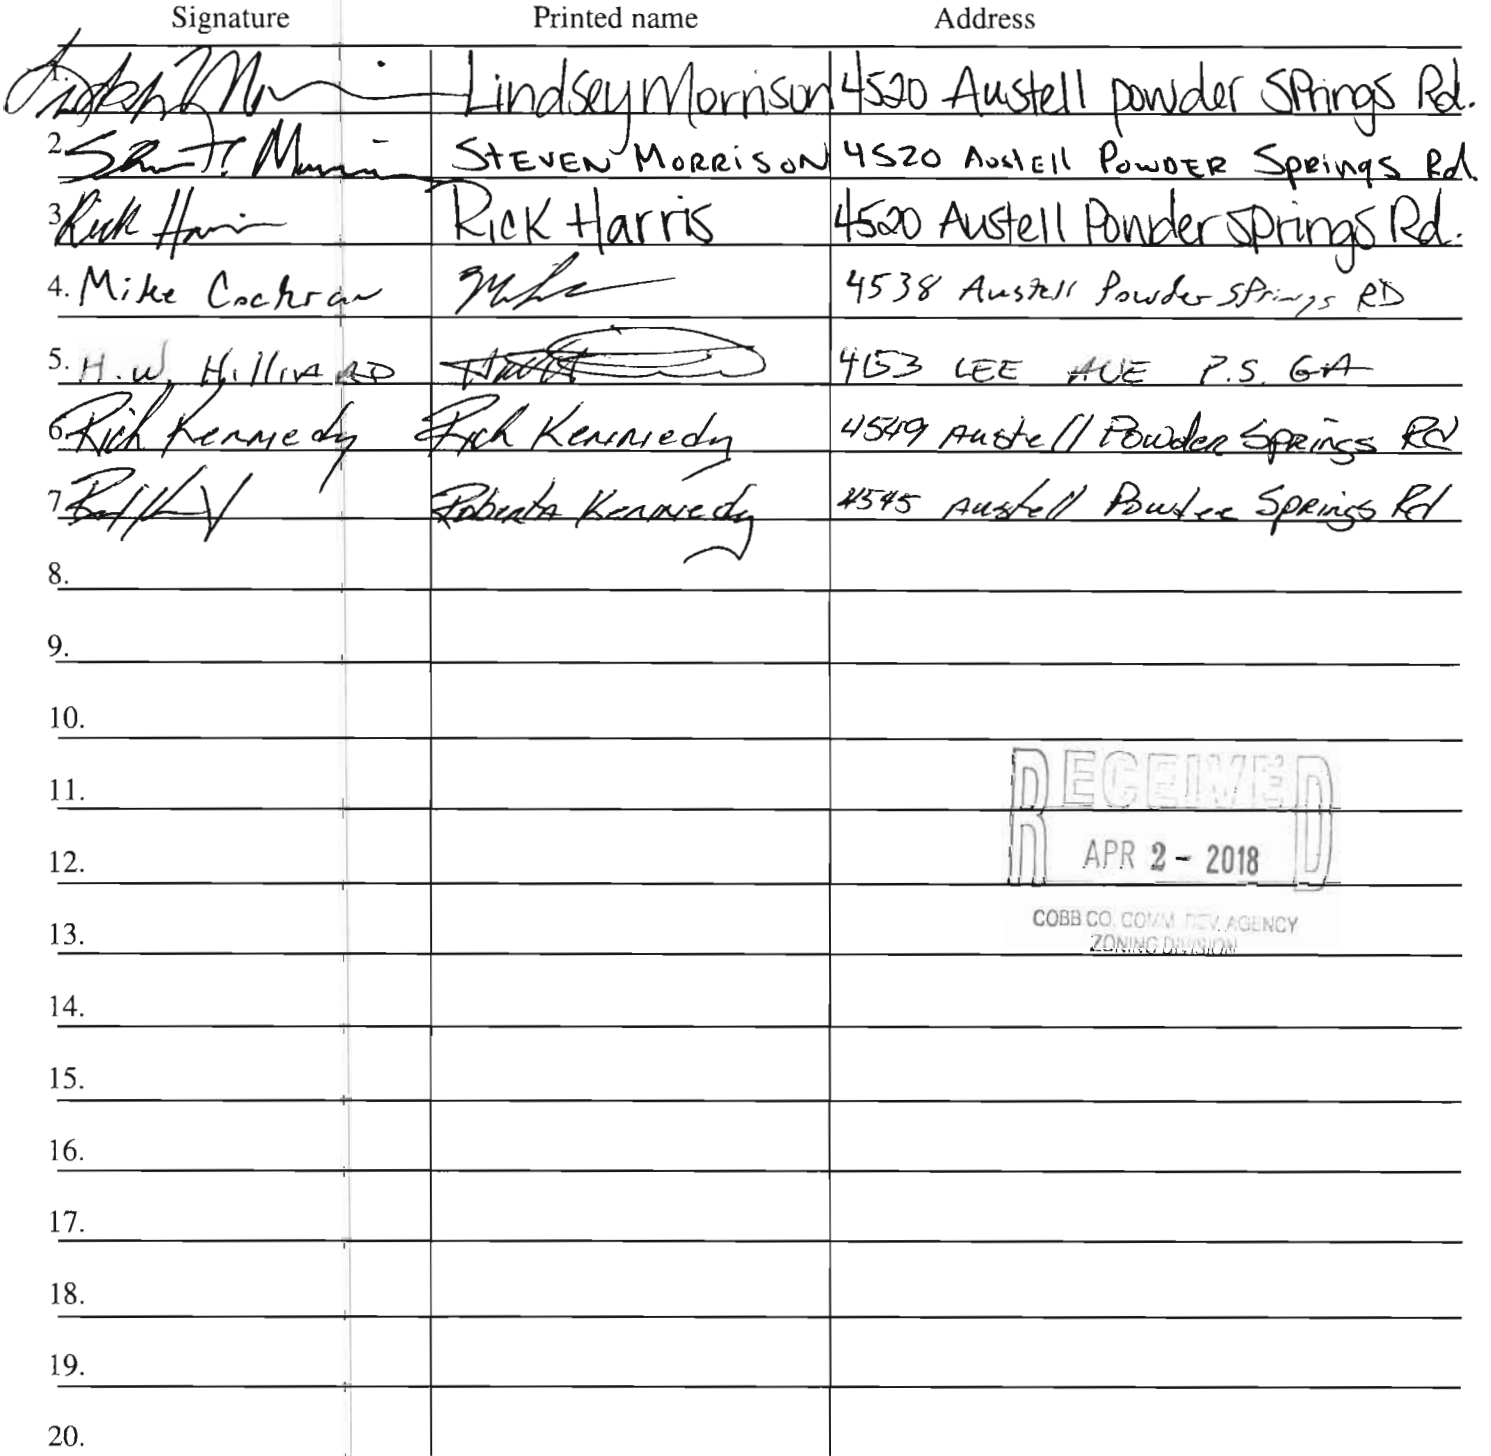 Signature Printed name Address
1. Lindsey Morrison 4520 Austell powder Springs Rd.
2. STEVEN MORRISON 4520 Austell POWDER Springs Rd.
3. Rick Harris Rick Harris 4520 Austell Powder Springs Rd.
4. Mike Cochran 4538 Austell Powder Springs RD
5. H.W. HilliARD 4153 LEE AVE P.S. GA
6. Rich Kennedy Rich Kennedy 4549 Austell Powder Springs Rd
7. Roberta Kennedy 4545 Austell Powder Springs Rd
8.
9.
10.
RECEIVED
11.
APR 2 - 2018
12.
COBB CO. COMM. DEV. AGENCY
13.
ZONING DIVISION
14.
15.
16.
17.
18.
19.
20.